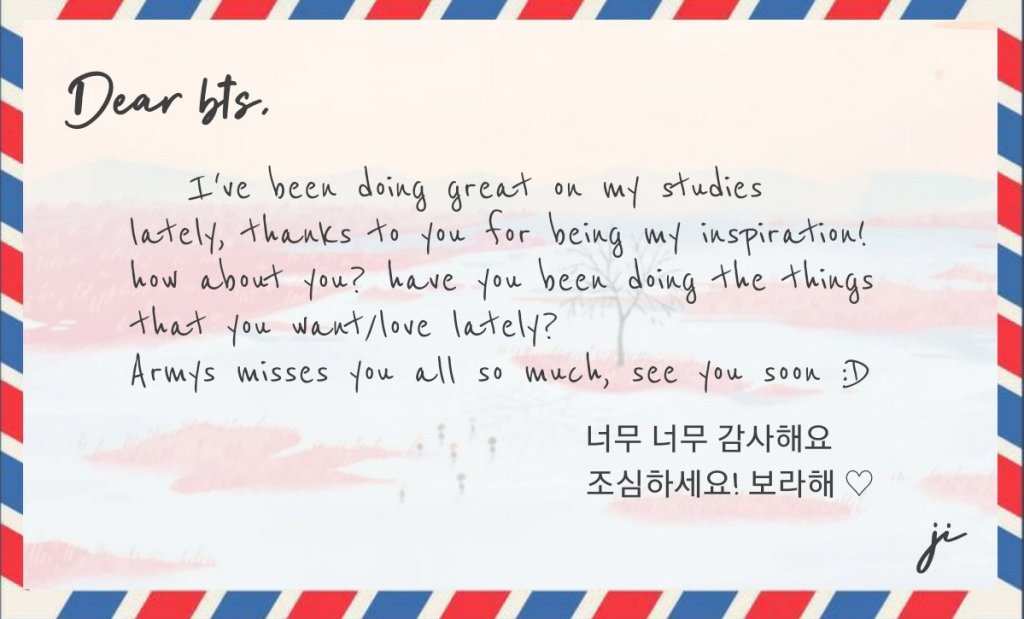 Dear bts,
I've been doing great on my studies
lately, thanks to you for being my inspiration!
how about you? have you been doing the things
that you want/love lately?
Armys misses you all so much, see you soon :D
너무 너무 감사해요
조심하세요! 보라해 ♡
ji